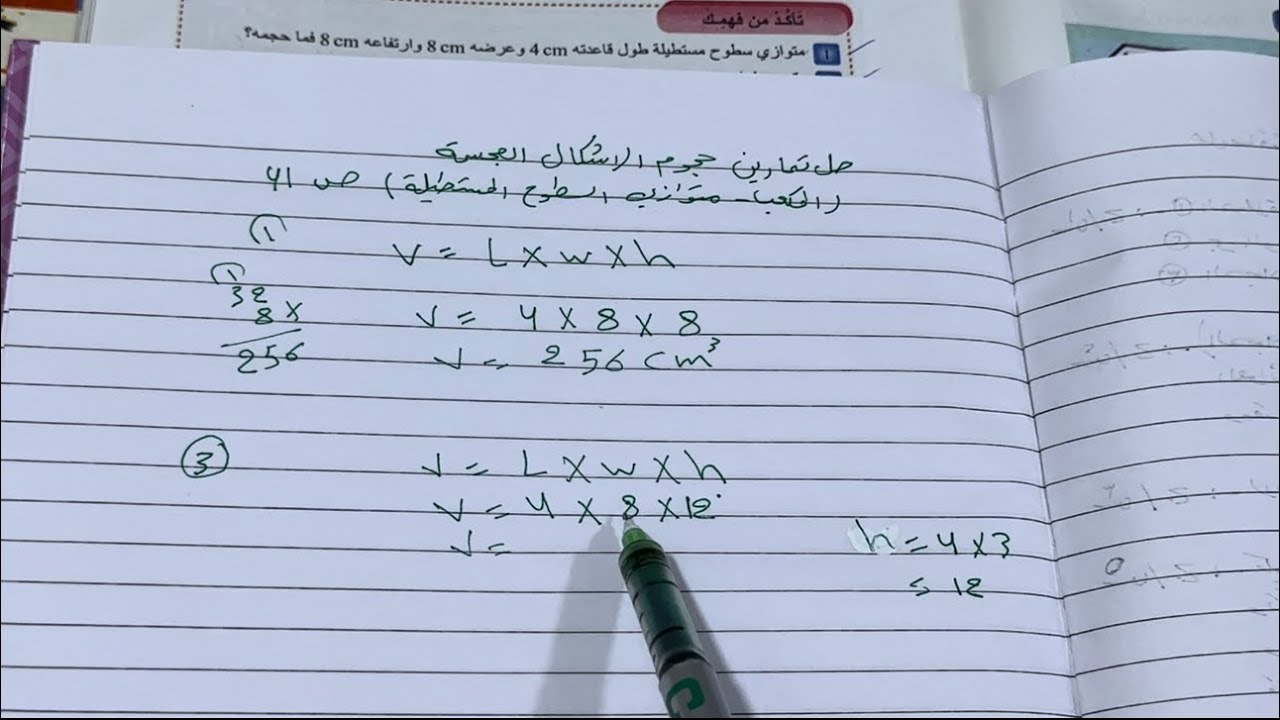 تَأكّدْ من فهمِكَ
١ متوازي سطوح مستطيلة طول قاعدته 4 cm وعرضه 8 cm وارتفاعه 8 cm فما حجمه؟
حل تمارين حجوم الاشكال المجسمة
(المكعب - متوازي السطوح المستطيلة) ص 41
1
V = L X w X h
1
32
8 X
256
V = 4 X 8 X 8
V = 256 cm³
3
V = L X w X h
V = 4 X 8 X 12
V =
h = 4 X 3
= 12